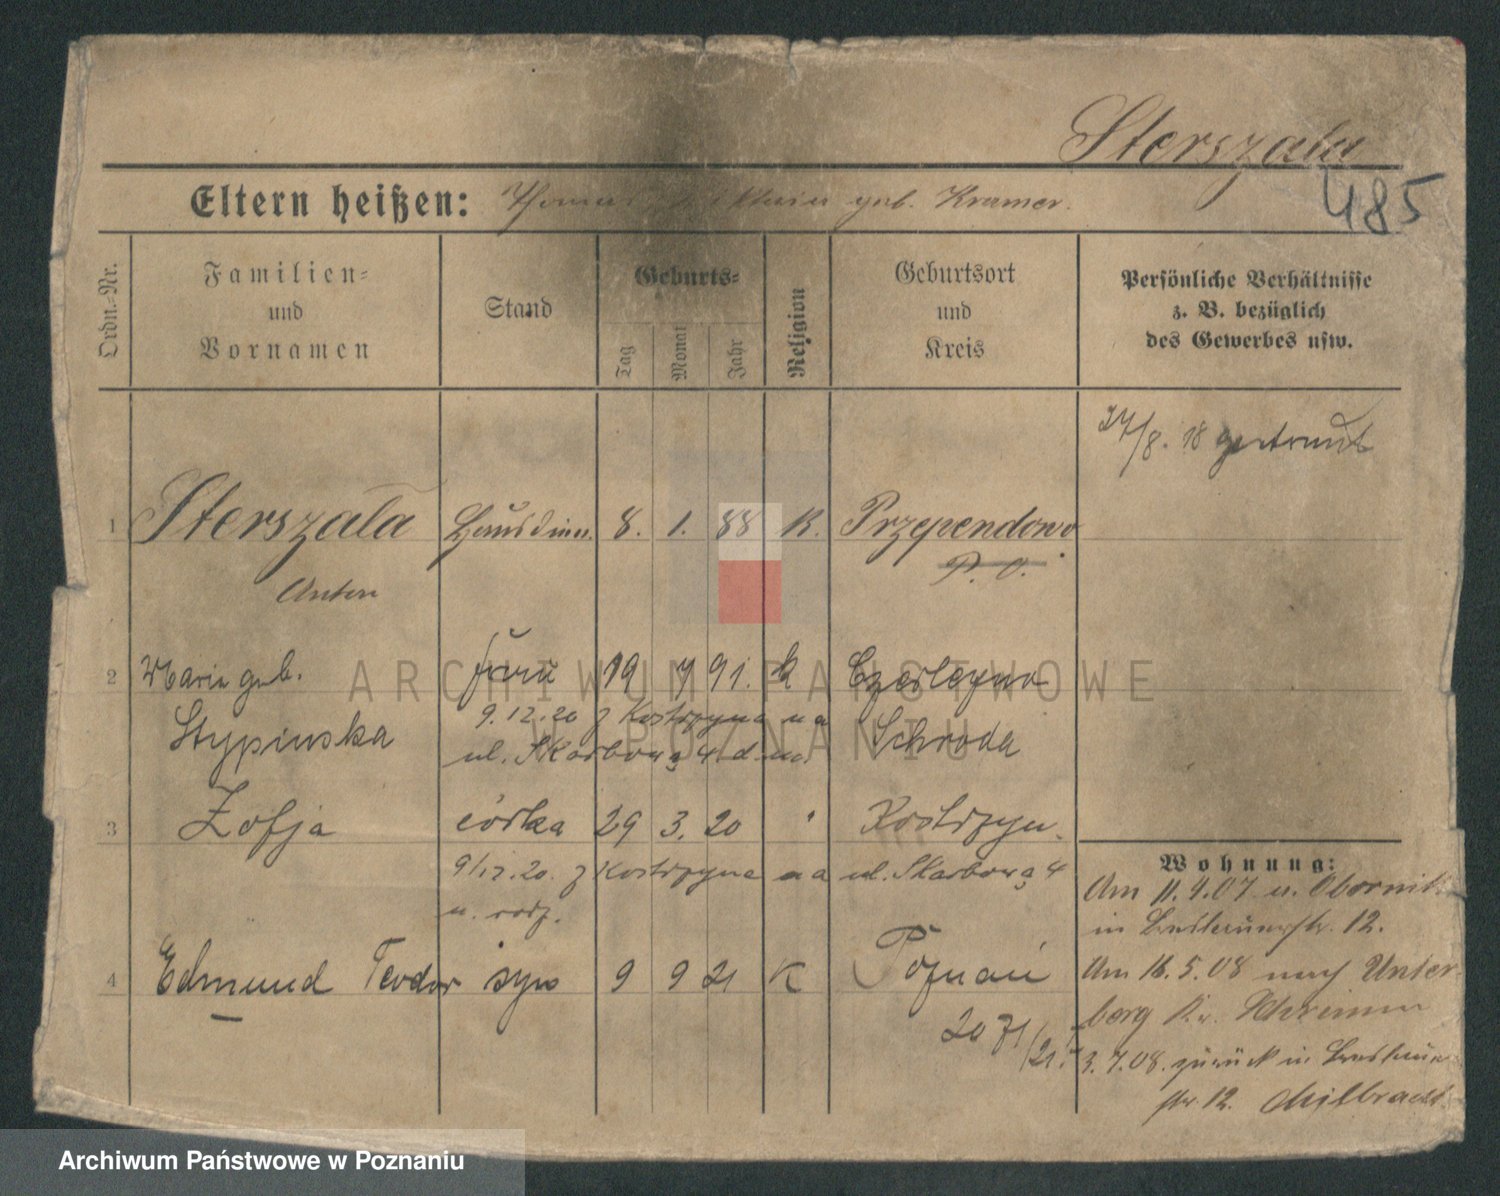 Sterszala
485
Eltern heißen: Thomas Viktoria geb. Kramer.
Ordn.-Nr.
Familien-
und
Vornamen
Stand
Geburts-
Tag
Monat
Jahr
Religion
Geburtsort
und
Kreis
Persönliche Verhältnisse
z. B. bezüglich
des Gewerbes usw.
27/8. 18 getraut
1 Sterszala Hausdien. 8. 1. 88 K. Przependowo
Anton P. O.
2 Marie geb. Frau 19 7 91. k Czerlejno
Stypinska 9.12.20 z Kostrzyna na Schroda
ul. Skarbową 4 d.
3 Zofja córka 29 3. 20 " Kostrzyn.
9/12.20. z Kostrzyna na ul. Skarbową 4
u. rodz.
4 Edmund Teodor syn 9 9 21 K Poznań
Wohnung:
Am 11.4.07 v. Obornik
in 12.
Am 16.5.08 nach Unter-
berg Kr. Schrimm
3.7.08. zurück in
str. 12. Milbradt
ARCHIWUM PAŃSTWOWE
W POZNANIU
Archiwum Państwowe w Poznaniu